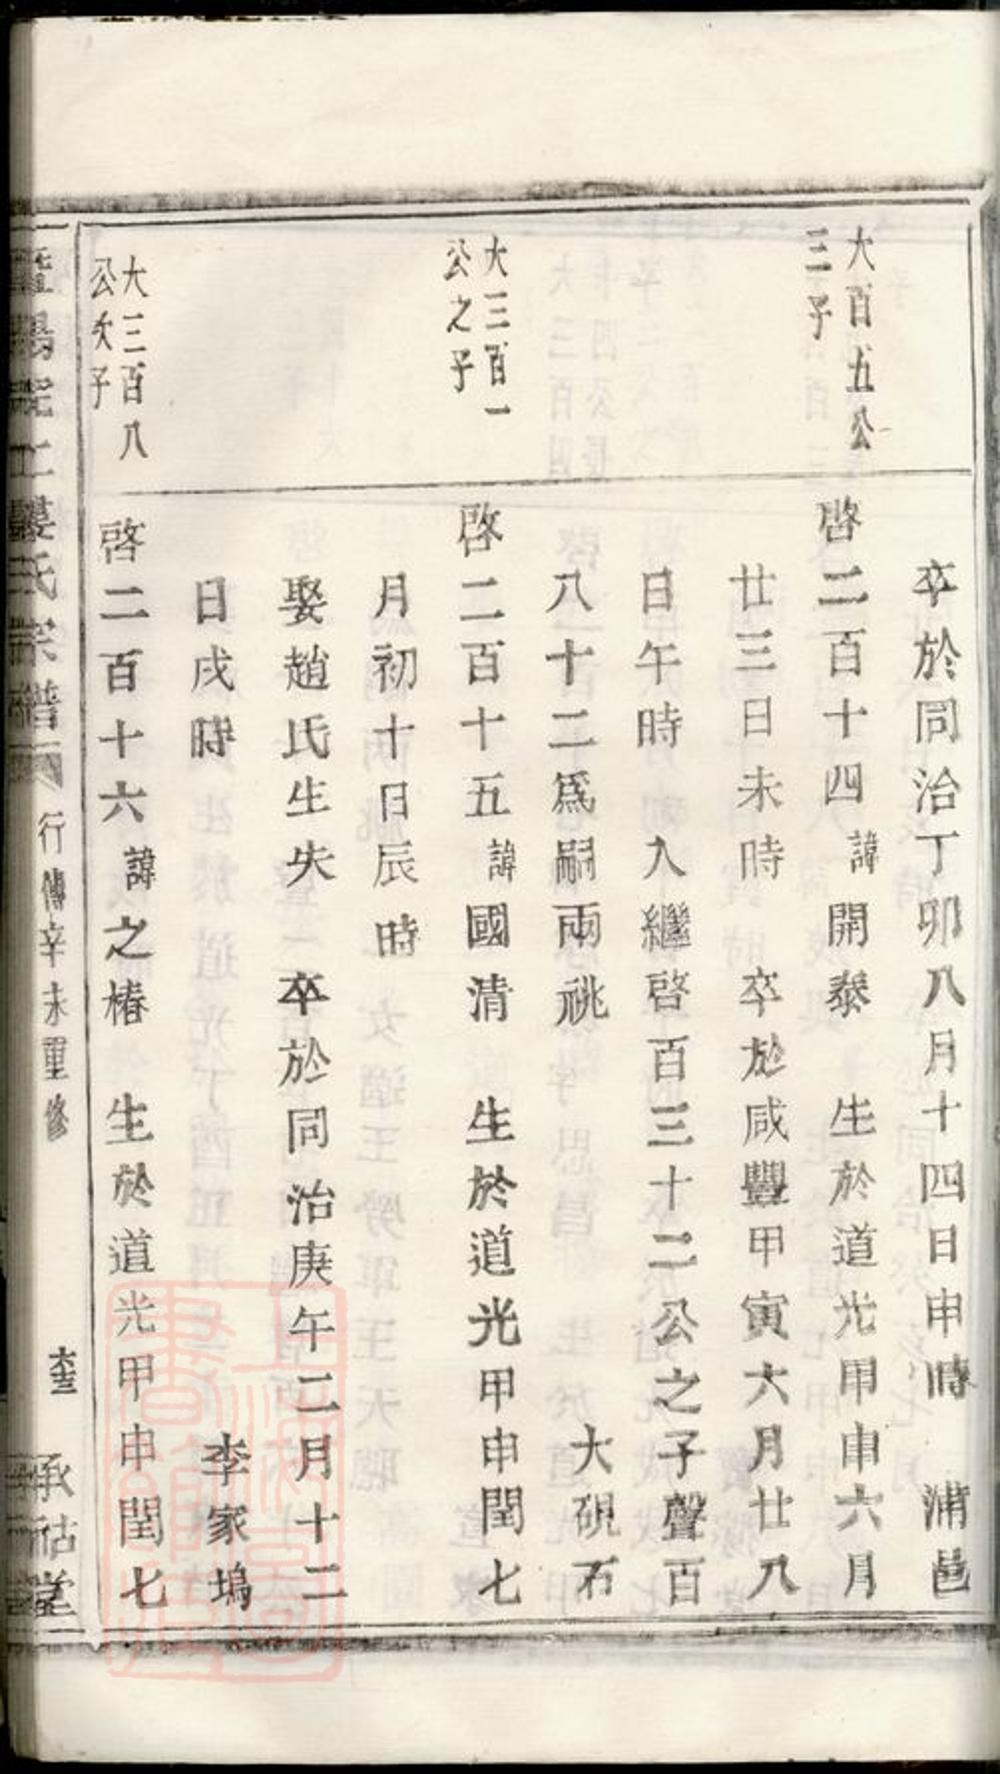 卒於同治丁卯八月十四日申時　浦邑
大百五公
三子
啓二百十四諱開泰　生於道光甲申六月
廿三日未時　卒於咸豐甲寅六月廿八
日午時　入繼啓百三十二公之子聲百
八十二爲嗣兩祧　大硯石
大三百一
公之子
啓二百十五諱國清　生於道光甲申閏七
月初十日辰時
娶趙氏生失　卒於同治庚午二月十二
日戌時　李家塢
大三百八
公次子
啓二百十六諱之椿　生於道光甲申閏七
氏宗譜
行傳辛未重修
承祜堂